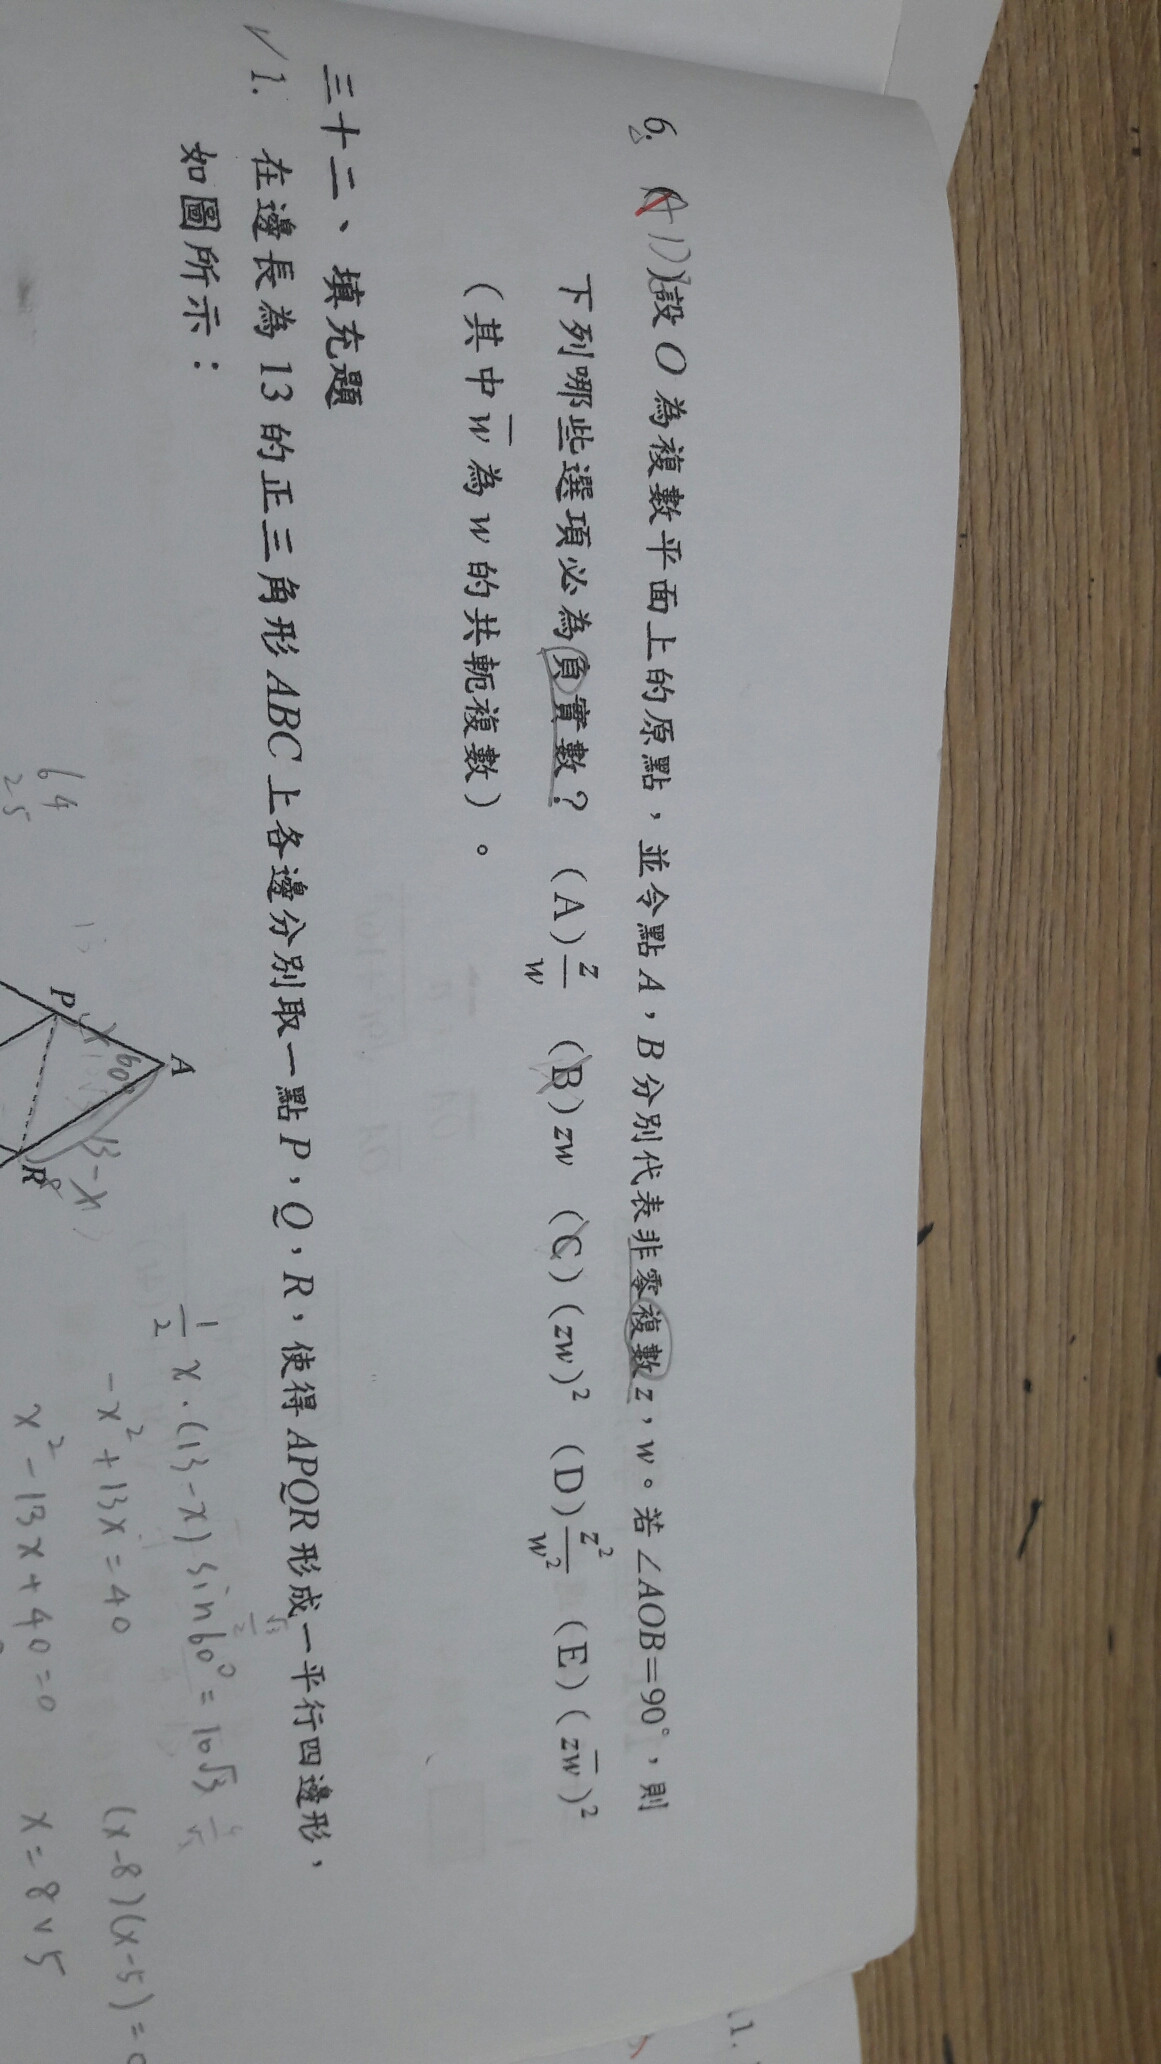 6. 設O為複數平面上的原點，並令點A，B分別代表非零複數z，w。若∠AOB=90°，則
下列哪些選項必為負實數？ (A) z/w (B) zw (C) (zw)² (D) z²/w² (E) (zw̅)²
(其中w̅為w的共軛複數)。
三十二、填充題
✓1. 在邊長為13的正三角形ABC上各邊分別取一點P，Q，R，使得APQR形成一平行四邊形，
如圖所示：
1/2 x·(13-x) sin60° = 10√3
-x²+13x=40 (x-8)(x-5)=0
x²-13x+40=0 x=8v5
A
60°
13-x
P
R
8
64
25
1.